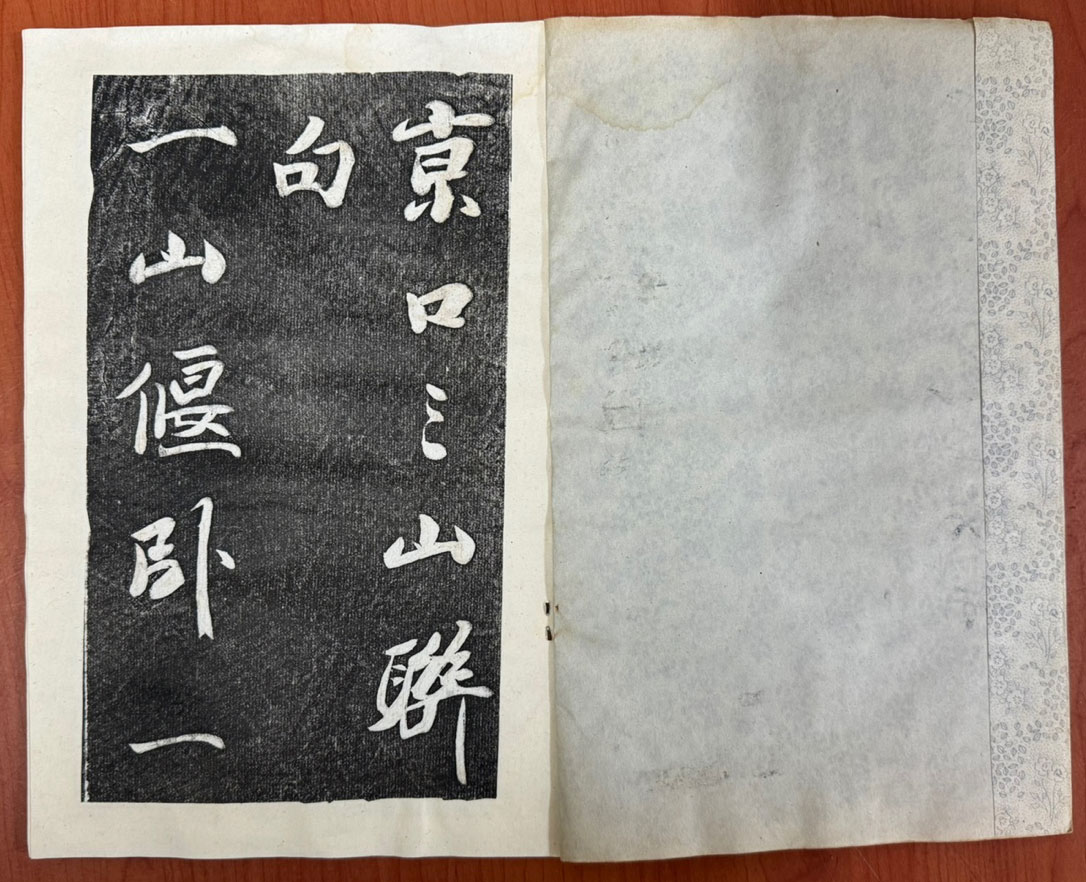 京口三山聯
句
一山偃卧一